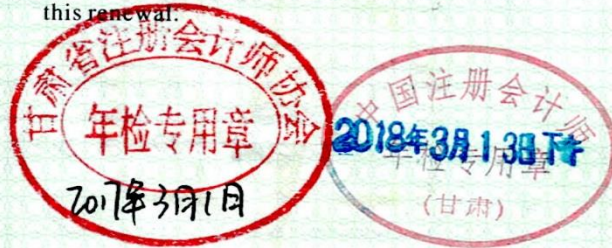 this renewal.
甘肃省注册会计师协会
年检专用章
2017年3月1日
中国注册会计师
2018年3月13日下午
年检专用章
(甘肃)